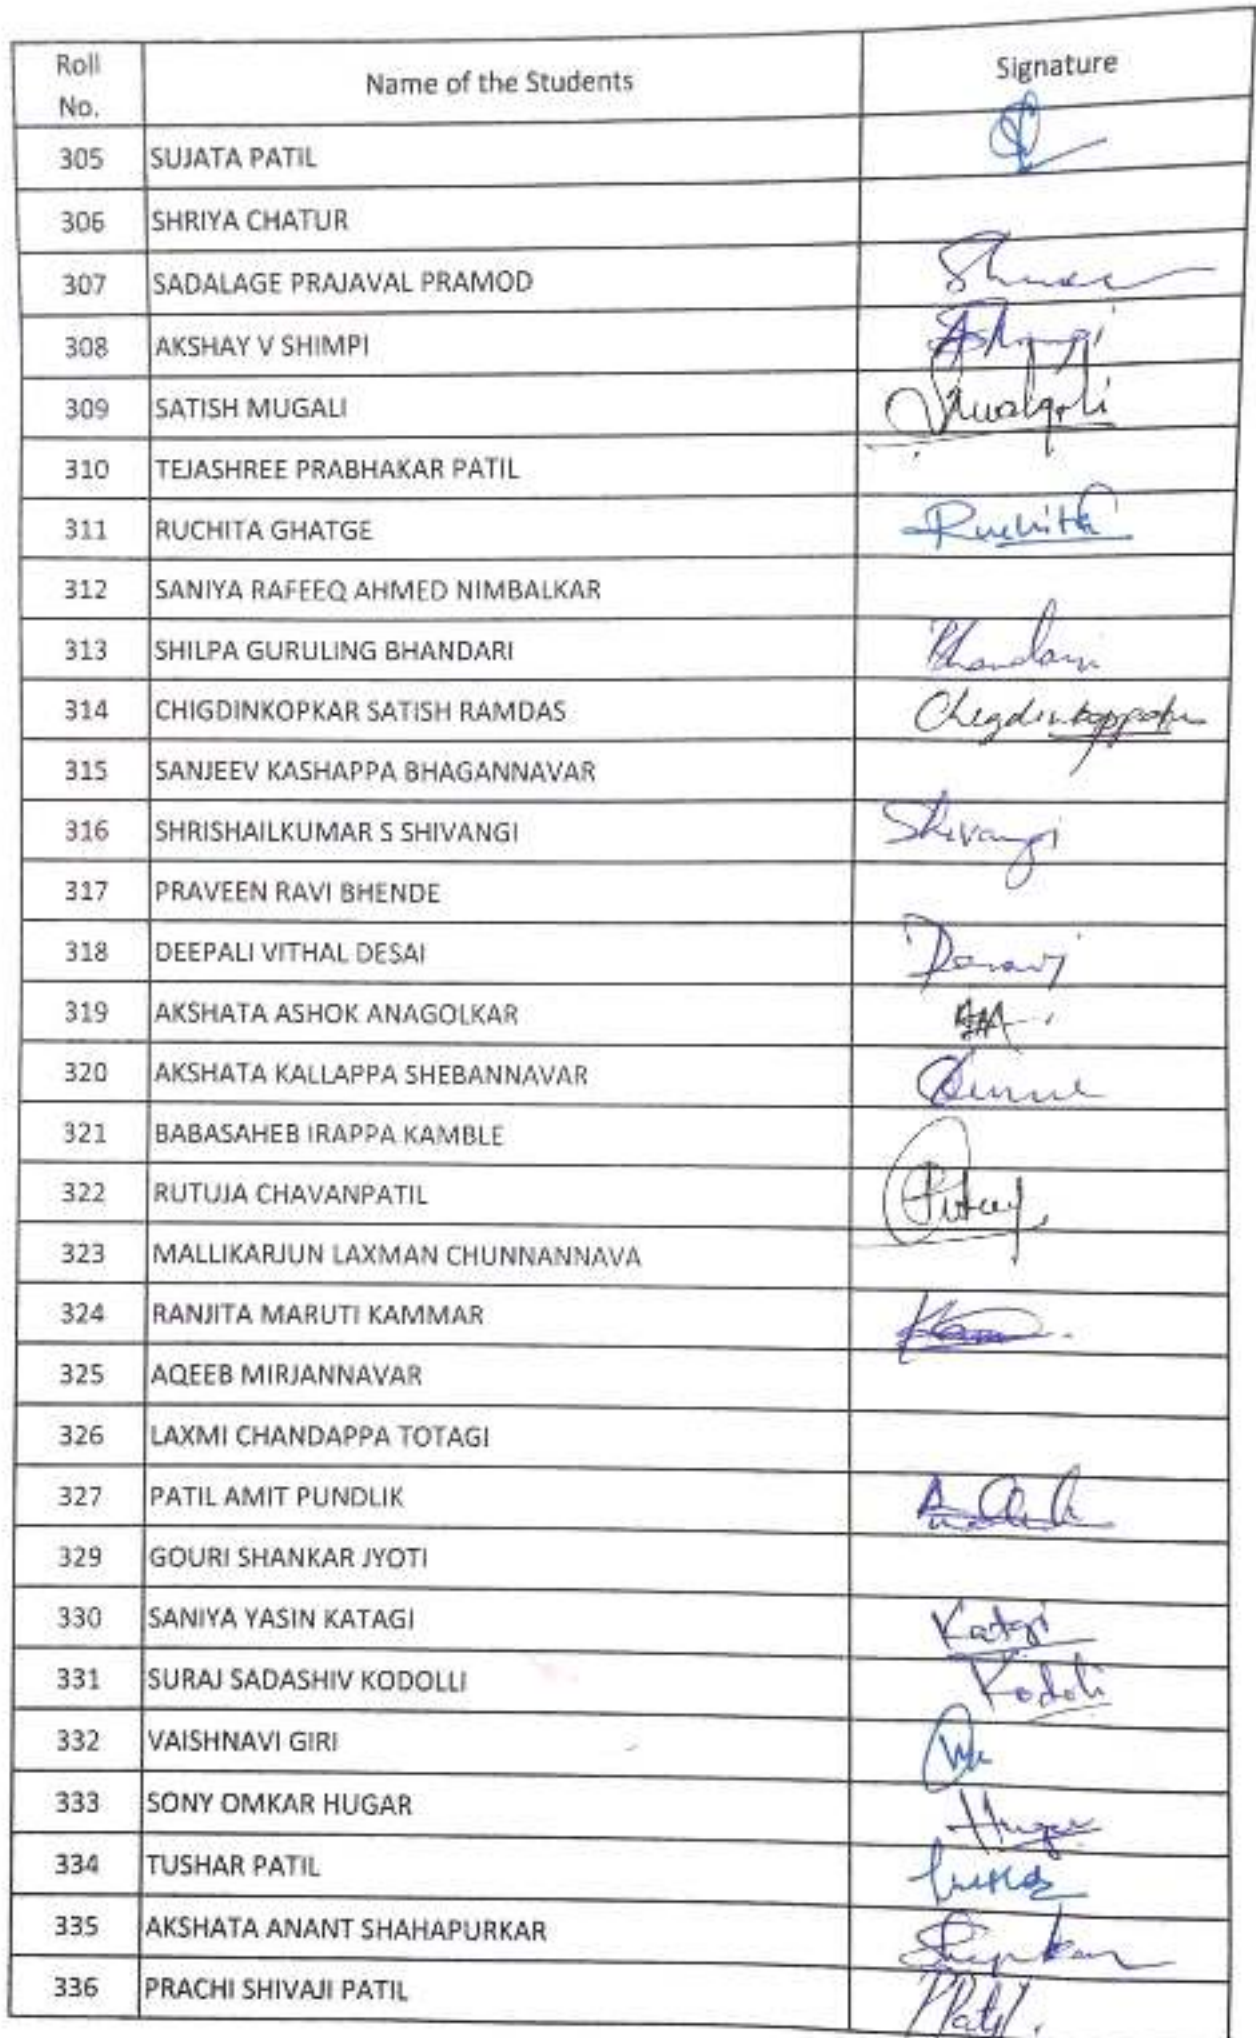 Roll No. Name of the Students Signature
305 SUJATA PATIL
306 SHRIYA CHATUR
307 SADALAGE PRAJAVAL PRAMOD
308 AKSHAY V SHIMPI
309 SATISH MUGALI
310 TEJASHREE PRABHAKAR PATIL
311 RUCHITA GHATGE Ruchita
312 SANIYA RAFEEQ AHMED NIMBALKAR
313 SHILPA GURULING BHANDARI Bhandari
314 CHIGDINKOPKAR SATISH RAMDAS
315 SANJEEV KASHAPPA BHAGANNAVAR
316 SHRISHAILKUMAR S SHIVANGI Shivangi
317 PRAVEEN RAVI BHENDE
318 DEEPALI VITHAL DESAI
319 AKSHATA ASHOK ANAGOLKAR
320 AKSHATA KALLAPPA SHEBANNAVAR
321 BABASAHEB IRAPPA KAMBLE
322 RUTUJA CHAVANPATIL
323 MALLIKARJUN LAXMAN CHUNNANNAVA
324 RANJITA MARUTI KAMMAR
325 AQEEB MIRJANNAVAR
326 LAXMI CHANDAPPA TOTAGI
327 PATIL AMIT PUNDLIK
329 GOURI SHANKAR JYOTI
330 SANIYA YASIN KATAGI Katagi
331 SURAJ SADASHIV KODOLLI Kodoli
332 VAISHNAVI GIRI
333 SONY OMKAR HUGAR Hugar
334 TUSHAR PATIL
335 AKSHATA ANANT SHAHAPURKAR
336 PRACHI SHIVAJI PATIL PPatil.